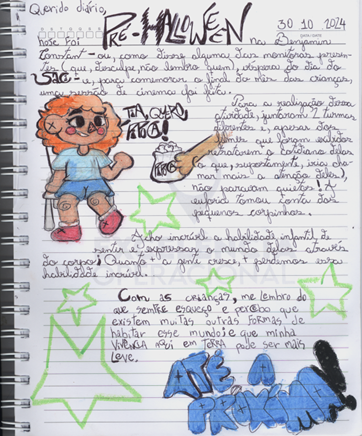 Querido diário,
PRÉ-HALLOWEEN
30 10 2024
hoje foi na Benjamin
Constant - ou, como disse alguma das monitoras presen-
tes (que, desculpe, não lembro quem), dispora do dia do
SACI - e, para comemorar o final do mês das crianças,
uma sessão de cinema foi feita.
TIA, QUERO
PIPOCA!
Para a realização dessa
atividade, juntaram 2 turmas
diferentes e, apesar dos
filmes que foram exibidos
retratarem o cotidiano deles
(o que, supostamente, iria cha-
mar mais a atenção deles),
não paravam quietos! A
euforia tomou conta dos
pequenos corpinhos.
Acho incrível a habilidade infantil de
sentir e expressar o mundo deles através
do corpo! Quanto + a gente cresce, + perdemos essa
habilidade incrível.
Com as crianças, me lembro do
que sempre esqueço e percebo que
existem muitas outras formas de
habitar esse mundo e que minha
vivência aqui em Terra pode ser mais
leve.
ATÉ A
PRÓXIMA!